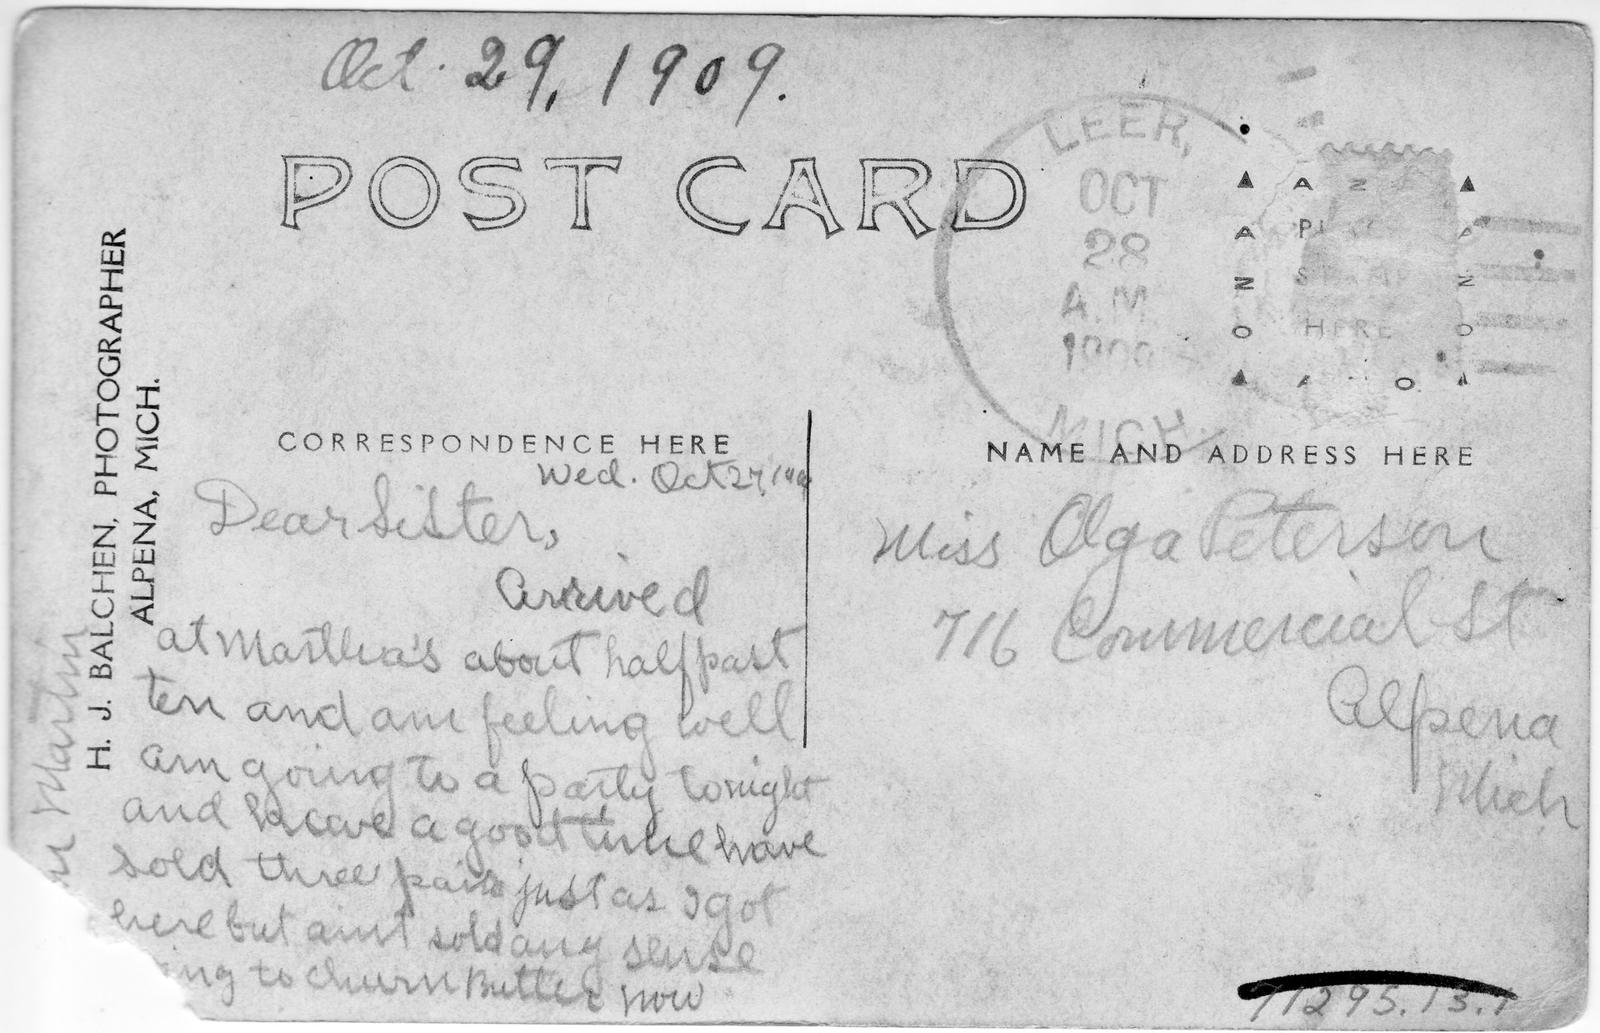 Oct. 29, 1909.
POST CARD
LEER,
OCT
28
A.M.
1909
MICH.
PLACE
STAMP
HERE
H. J. BALCHEN, PHOTOGRAPHER
ALPENA, MICH.
CORRESPONDENCE HERE
Wed. Oct 27, 190
Dear Sister,
Arrived
at Martha's about half past
ten and am feeling well
am going to a party tonight
and have a good time have
sold three pair just as I got
here but aint sold any sense
ing to churn Butter now
Martin
NAME AND ADDRESS HERE
Miss Olga Peterson
716 Commercial St
Alpena
Mich
71295.13.1